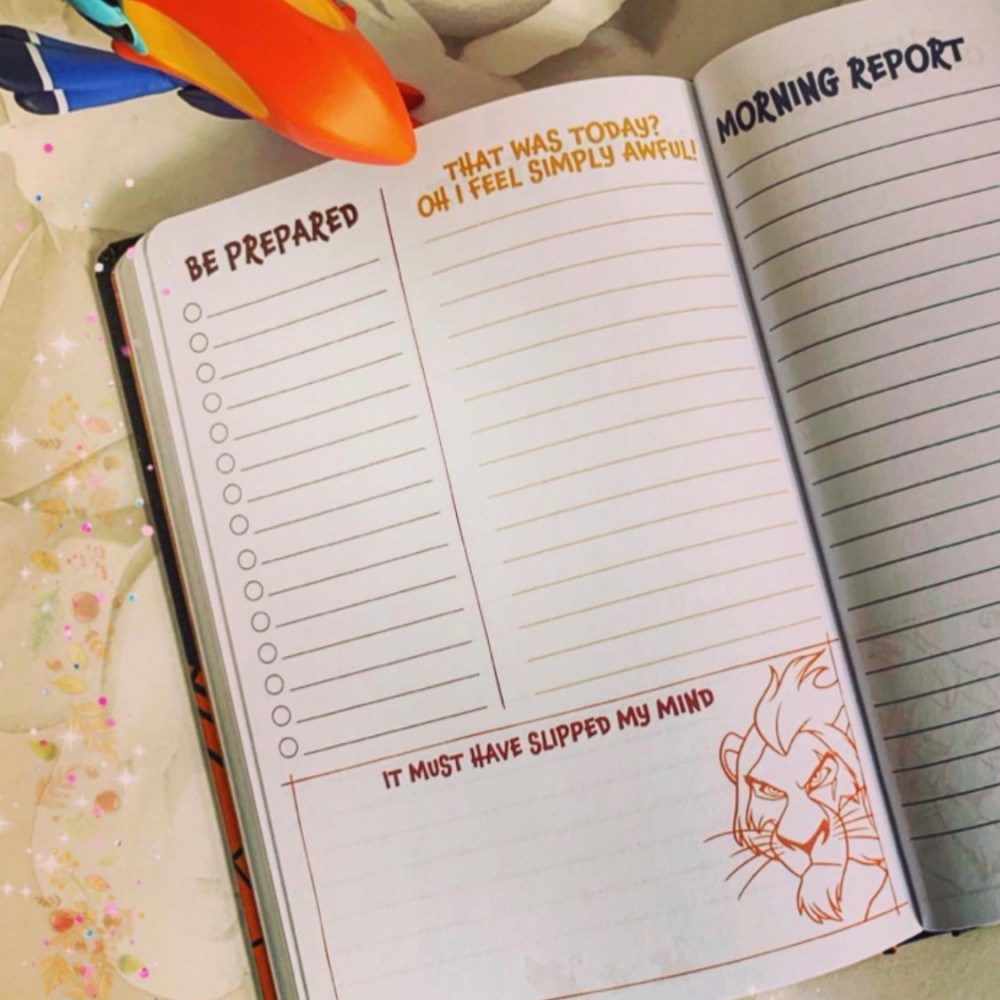 BE PREPARED
THAT WAS TODAY?
OH I FEEL SIMPLY AWFUL!
IT MUST HAVE SLIPPED MY MIND
MORNING REPORT